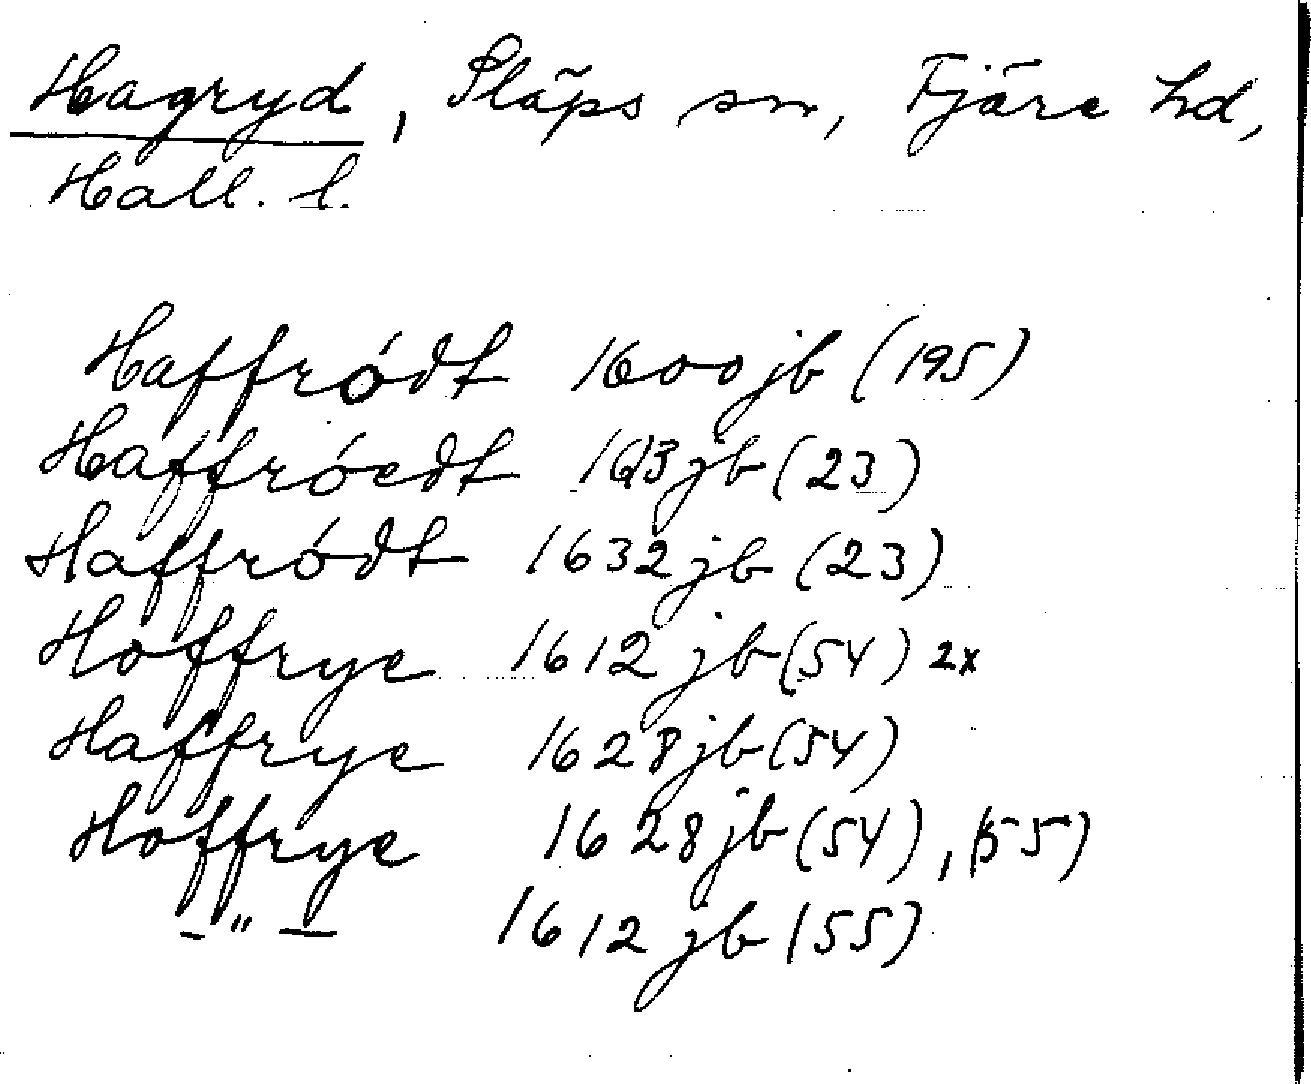 Hagryd, Släps sn, Fjäre hd,
Hall. l.
Haffródt 1600 jb (195)
Haffróedt 1613 jb (23)
Haffródt 1632 jb (23)
Hoffrye 1612 jb (54) 2x
Haffrye 1628 jb (54)
Hoffrye 1628 jb (54), (55)
–"– 1612 jb (55)